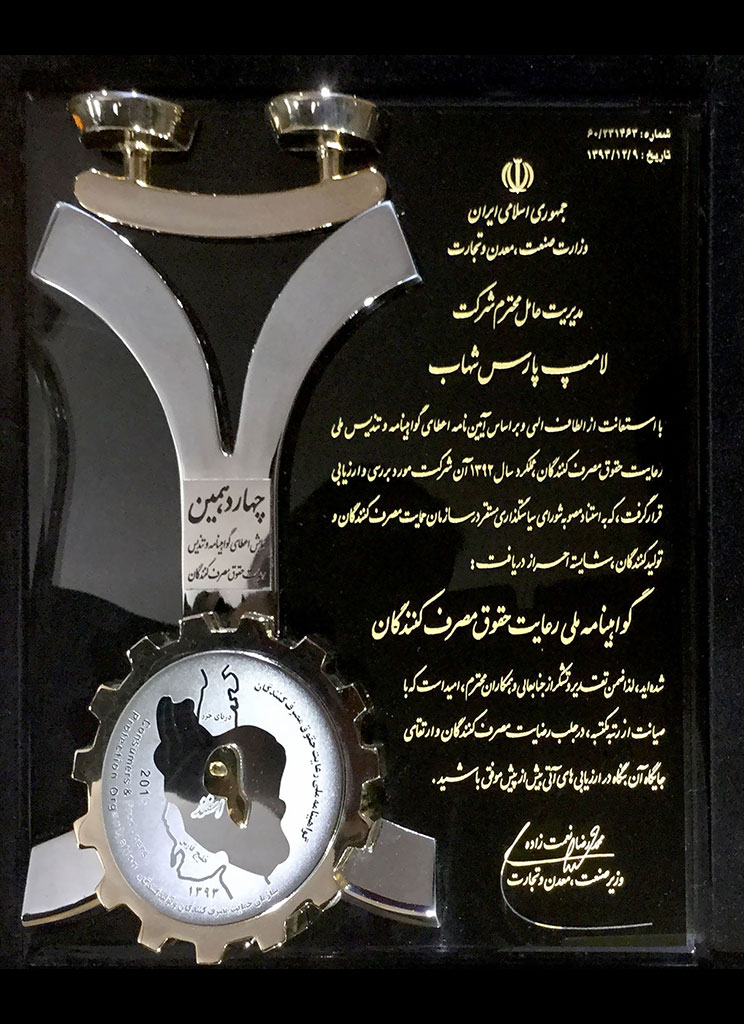 شماره: ۶۰/۲۳۱۴۶۳
تاریخ: ۱۳۹۳/۱۲/۹
جمهوری اسلامی ایران
وزارت صنعت، معدن و تجارت
مدیریت عامل محترم شرکت
لامپ پارس شهاب
با استعانت از الطاف الهی و بر اساس آیین نامه اعطای گواهینامه و تندیس ملی
رعایت حقوق مصرف کنندگان، عملکرد سال ۱۳۹۲ آن شرکت مورد بررسی و ارزیابی
قرار گرفت، که به استناد مصوبه شورای سیاستگذاری مستقر در سازمان حمایت مصرف کنندگان و
تولید کنندگان، شایسته احراز دریافت:
گواهینامه ملی رعایت حقوق مصرف کنندگان
شده اید، لذا ضمن تقدیر و تشکر از جنابعالی و همکاران محترم، امید است که با
صیانت از رتبه مکتسبه، در جلب رضایت مصرف کنندگان و ارتقای
جایگاه آن بنگاه در ارزیابی های آتی بیش از پیش موفق باشید.
محمدرضا نعمت زاده
وزیر صنعت، معدن و تجارت
چهاردهمین
همایش اعطای گواهینامه و تندیس
رعایت حقوق مصرف کنندگان
گواهینامه ملی رعایت حقوق مصرف کنندگان
دریای خزر
خلیج فارس
۱۳۹۳
201
Consumers &
Protection
سازمان حمایت مصرف کنندگان و تولیدکنندگان